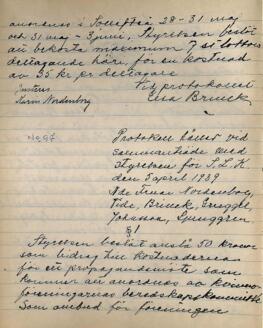 anordnas i Södertälje 28-31 maj
och 31 maj - 3 juni. Styrelsen beslöt
att bekosta maximum 7 st lottors
deltagande häri, för en kostnad
av 35 kr pr deltagare
Justeras Vid protokollet
Karin Nordenborg Elsa Brinck
No 97 Protokoll hållet vid
sammanträde med
styrelsen för S.L.K.
den 5 april 1939
Nde Fruar Nordenborg,
Tide, Brinck,
Johansson, Ljunggren
§1
Styrelsen beslöt anslå 50 kronor
som bidrag till kostnaderna
för ett propagandamöte som
kommer att anordnas av kvinno-
föreningarnas beredskapskommitté
Som ombud för föreningen